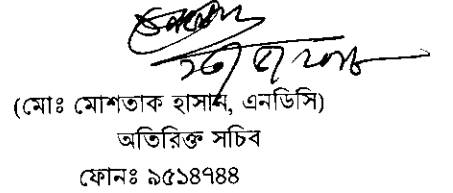 (মোঃ মোশতাক হাসান, এনডিসি)
অতিরিক্ত সচিব
ফোনঃ ৯৫১৪৭৪৪